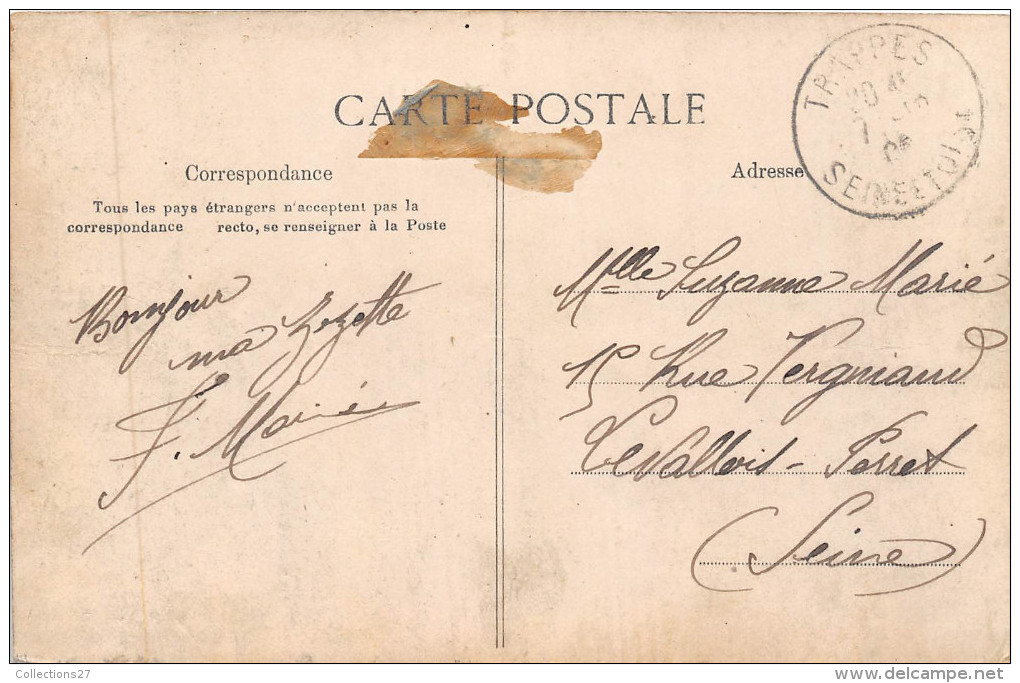 CARTE POSTALE
TRAPPES
SEINE ET OISE
Correspondance
Adresse
Tous les pays étrangers n'acceptent pas la
correspondance recto, se renseigner à la Poste
Bonjour
ma Zezette
F. Marié
Mlle Suzanne Marié
15 Rue Vergniaud
Levallois-Perret
(Seine)
Collections27
delcampe.net